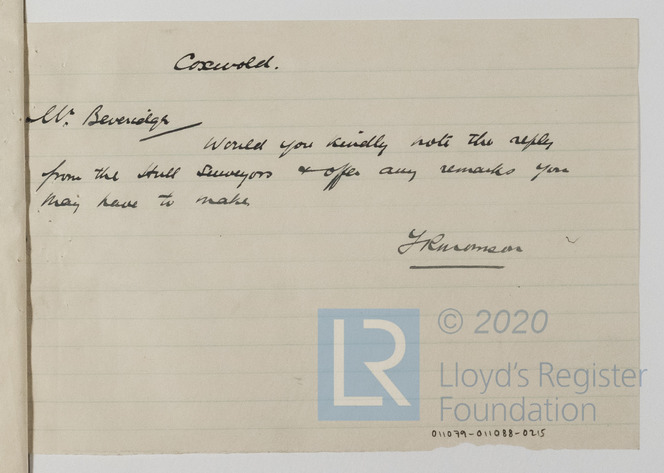 Coxwold.
Mr. Beveridge
Would you kindly note the reply
from the Hull Surveyors & offer any remarks you
may have to make
LR © 2020
Lloyd's Register
Foundation
011079-011088-0215